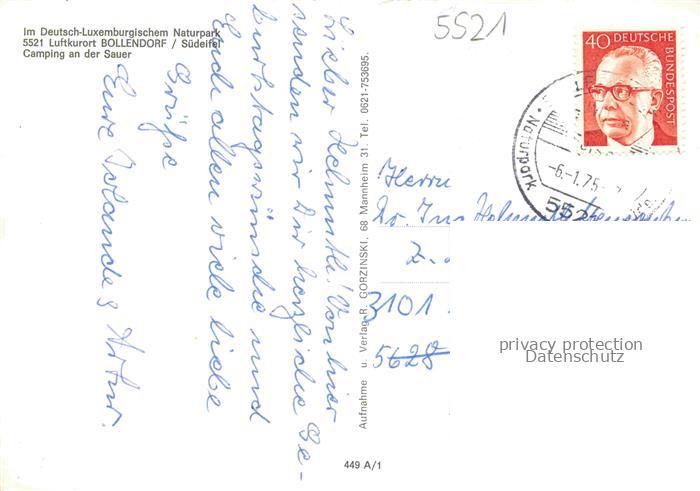 Im Deutsch-Luxemburgischem Naturpark
5521 Luftkurort BOLLENDORF / Südeifel
Camping an der Sauer
5521
40 DEUTSCHE
BUNDESPOST
Naturpark
-6.-1.75-
552
Lieber Helmut! Von hier
senden wir Dir herzliche Ge-
burtstagswünsche und
Euch allen viele liebe
Grüße
Eure Jolande & Artur.
Aufnahme u. Verlag R. GORZINSKI, 68 Mannheim 31. Tel. 0621-753695.
Herrn
Helmut
3101
5628
449 A/1
privacy protection
Datenschutz